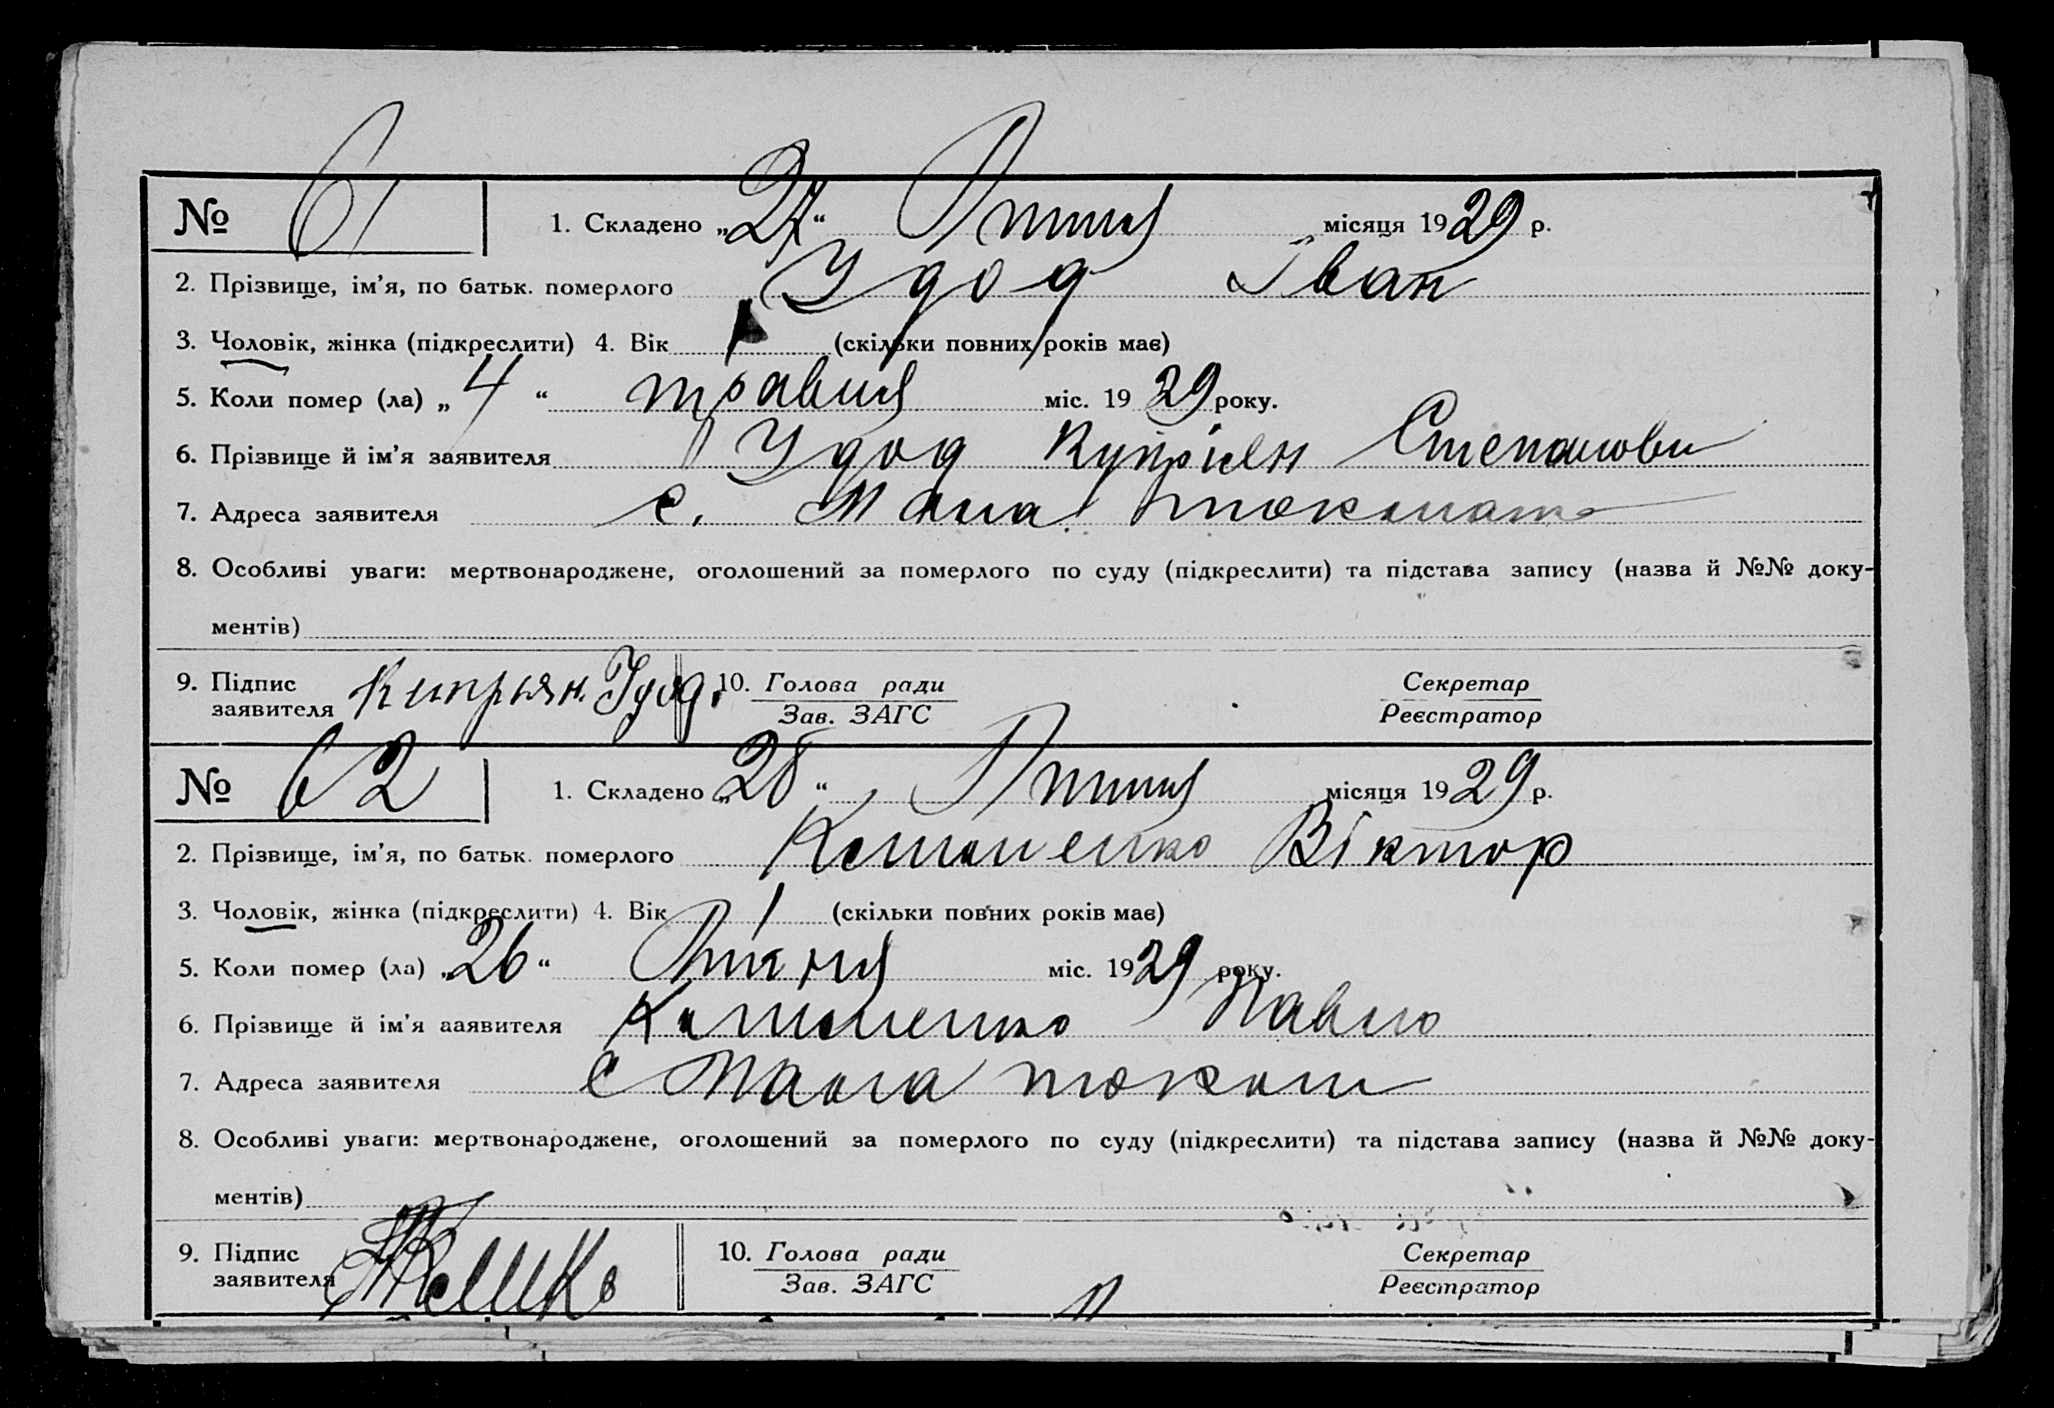 № 61 1. Складено „27“ Липня місяця 1929 р.
2. Прізвище, ім'я, по батьк. померлого Удод Іван
3. Чоловік, жінка (підкреслити) 4. Вік 1 (скільки повних років має)
5. Коли помер (ла) „4“ травня міс. 1929 року.
6. Прізвище й ім'я заявителя Удод Купріян Степанови
7. Адреса заявителя с. Мала
8. Особливі уваги: мертвонароджене, оголошений за померлого по суду (підкреслити) та підстава запису (назва й №№ доку-
ментів)
9. Підпис заявителя Кипрьян. Удод. 10. Голова ради Секретар
Зав. ЗАГС Реєстратор
№ 62 1. Складено „28“ Липня місяця 1929 р.
2. Прізвище, ім'я, по батьк. померлого Віктор
3. Чоловік, жінка (підкреслити) 4. Вік 1 (скільки повних років має)
5. Коли помер (ла) „26“ міс. 1929 року.
6. Прізвище й ім'я ааявителя Павло
7. Адреса заявителя с Мала токма
8. Особливі уваги: мертвонароджене, оголошений за померлого по суду (підкреслити) та підстава запису (назва й №№ доку-
ментів)
9. Підпис заявителя 10. Голова ради Секретар
Зав. ЗАГС Реєстратор